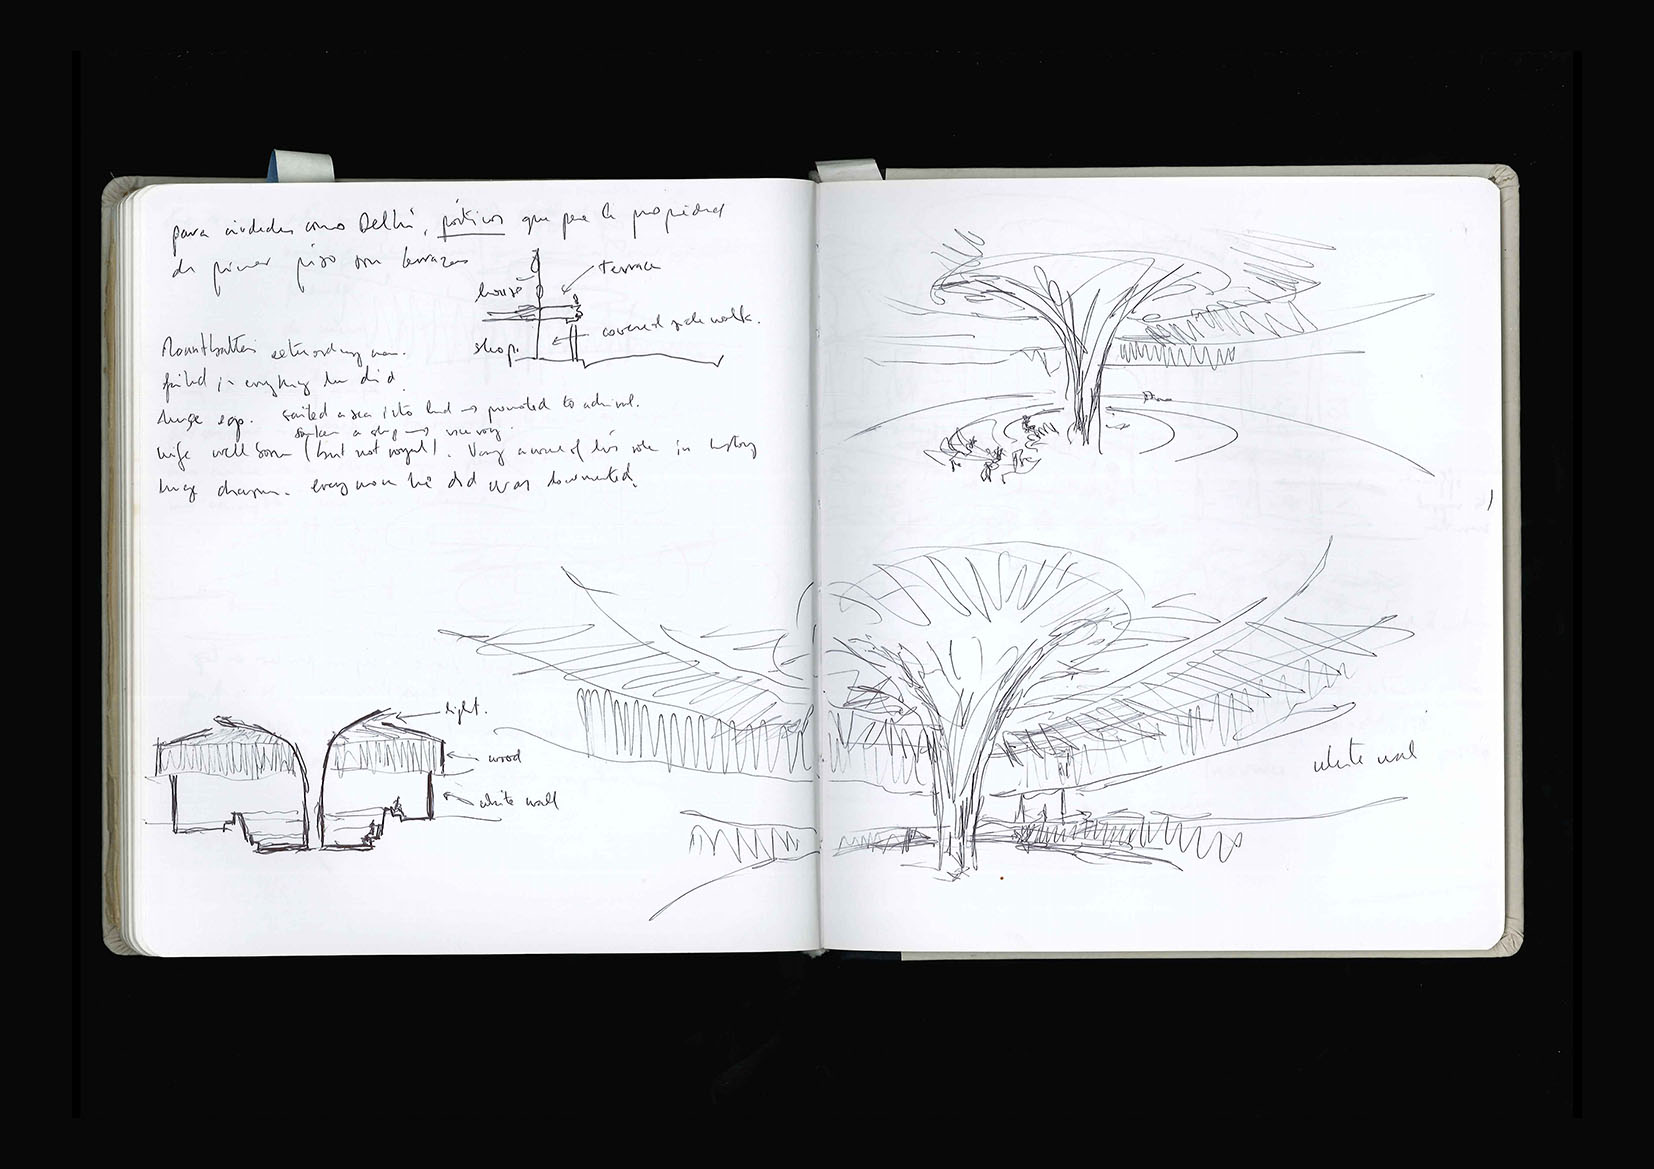 para ciudades como Delhi, pórticos que pase la propiedad
de primer piso son terrazas
terrace
house
covered side walk.
shop.
Mountbatten extraordinary man.
failed in everything he did.
huge ego. sailed a sea into land → promoted to admiral.
sunken a ship → viceroy.
wife well born (but not royal). Very aware of his role in history
huge charm. every move he did was documented.
light.
wood
white wall
white wall